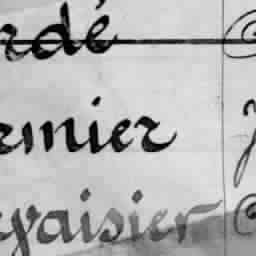 rdé
rmier
vaisier